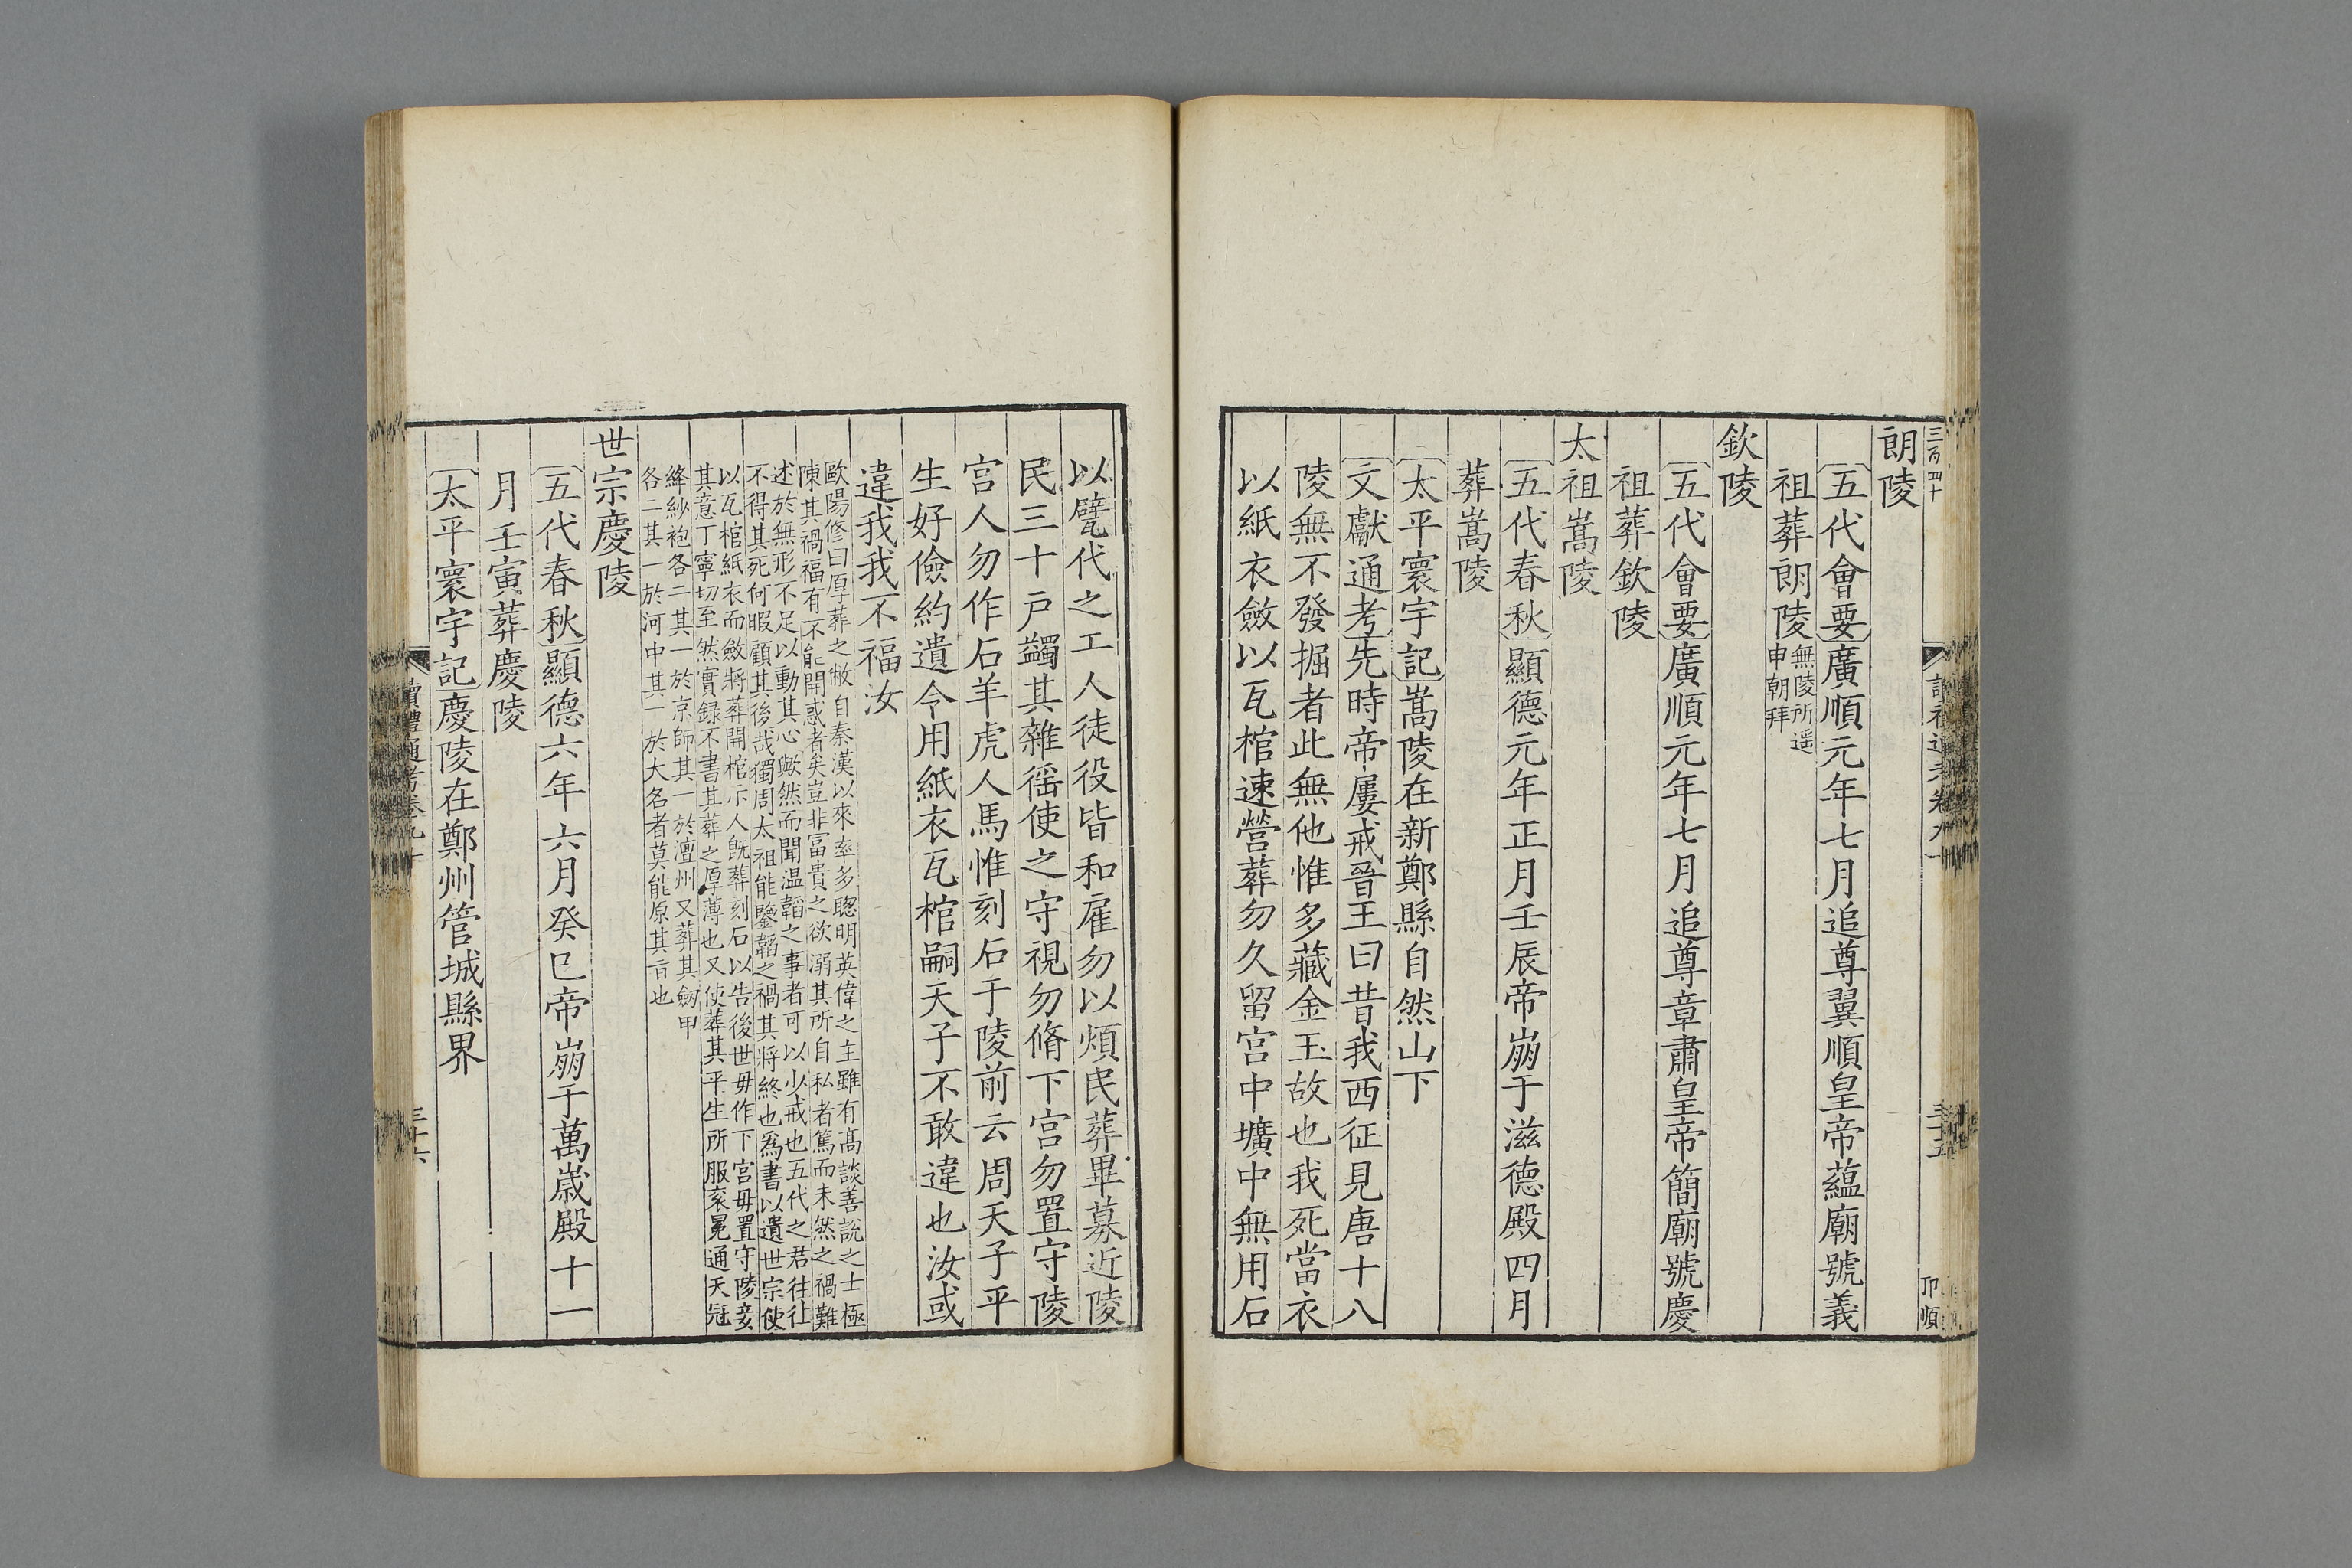 三百四十
朗陵
五代會要廣順元年七月追尊翼順皇帝藴廟號義
祖葬朗陵無陵所遥
申朝拜
欽陵
五代會要廣順元年七月追尊章肅皇帝簡廟號慶
祖葬欽陵
太祖嵩陵
五代春秋顯德元年正月壬辰帝崩于滋德殿四月
葬嵩陵
太平寰宇記嵩陵在新鄭縣自然山下
文獻通考先時帝屢戒晉王曰昔我西征見唐十八
陵無不發掘者此無他惟多藏金玉故也我死當衣
以紙衣斂以瓦棺速營葬勿久留宮中壙中無用石
以甓代之工人徒役皆和雇勿以煩民葬畢募近陵
民三十戸蠲其雜徭使之守視勿脩下宮勿置守陵
宮人勿作石羊虎人馬惟刻石于陵前云周天子平
生好儉約遺令用紙衣瓦棺嗣天子不敢違也汝或
違我我不福汝
歐陽修曰厚葬之敝自秦漢以來率多聰明英偉之主雖有高談善說之士極
陳其禍福有不能開惑者矣豈非富貴之欲溺其所自私者篤而未然之禍難
述於無形不足以動其心歟然而聞温韜之事者可以少戒也五代之君往往
不得其死何暇顧其後哉獨周太祖能鑒韜之禍其將終也爲書以遺世宗使
以瓦棺紙衣而斂將葬開棺示人旣葬刻石以告後世毋作下宮毋置守陵妾
其意丁寧切至然實録不書其葬之厚薄也又使葬其平生所服衮冕通天冠
絳紗袍各二其一於京師其一於澶州又葬其劒甲
各二其一於河中其一於大名者莫能原其旨也
世宗慶陵
五代春秋顯德六年六月癸巳帝崩于萬歳殿十一
月壬寅葬慶陵
太平寰宇記慶陵在鄭州管城縣界
讀禮通考卷九十
三十六